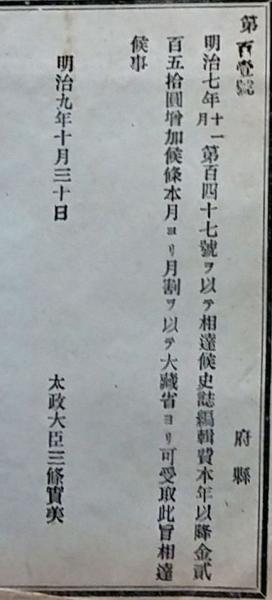 第百壹號
府縣
明治七年十一月第百四十七號ヲ以テ相達候史誌編輯費本年以降金貳
百五拾圓增加候條本月ヨリ月割ヲ以テ大藏省ヨリ可受取此旨相達
候事
明治九年十月三十日
太政大臣三條實美